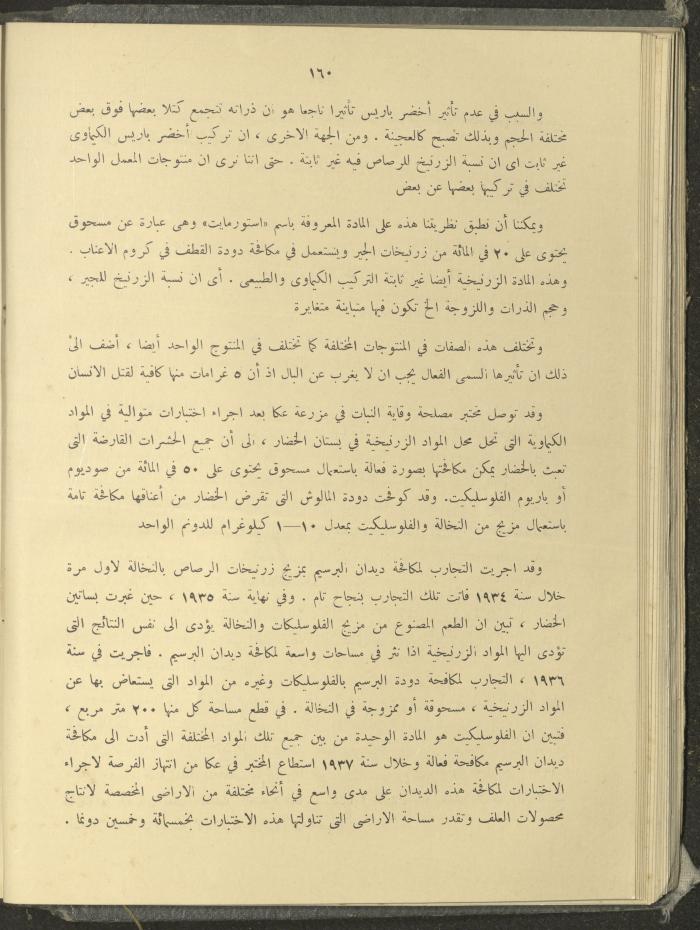 ١٦٠
والسبب في عدم تأثير أخضر باريس تأثيرا ناجعا هو ان ذراته تتجمع كتلا بعضها فوق بعض
مختلفة الحجم وبذلك تصبح كالعجينة . ومن الجهة الاخرى ، ان تركيب أخضر باريس الكيماوى
غير ثابت اى ان نسبة الزرنيخ للرصاص فيه غير ثابتة . حتى اننا نرى ان منتوجات المعمل الواحد
تختلف في تركيبها بعضها عن بعض
ويمكننا أن نطبق نظريتنا هذه على المادة المعروفة باسم «استورمايت» وهى عبارة عن مسحوق
يحتوى على ٢٠ في المائة من زرنيخات الجير ويستعمل في مكافحة دودة القطف في كروم الاعناب .
وهذه المادة الزرنيخية أيضا غير ثابتة التركيب الكيماوى والطبيعى . أى ان نسبة الزرنيخ للجير ،
وحجم الذرات واللزوجة الخ تكون فيها متباينة متغايرة
وتختلف هذه الصفات في المنتوجات المختلفة كما تختلف في المنتوج الواحد أيضا ، أضف الى
ذلك ان تأثيرها السمى الفعال يجب ان لا يغرب عن البال اذ أن ٥ غرامات منها كافية لقتل الانسان
وقد توصل مختبر مصلحة وقاية النبات في مزرعة عكا بعد اجراء اختبارات متوالية في المواد
الكيماوية التى تحل محل المواد الزرنيخية في بستان الخضار ، الى أن جميع الحشرات القارضة التى
تعبث بالخضار يمكن مكافحتها بصورة فعالة باستعمال مسحوق يحتوى على ٥٠ في المائة من صوديوم
أو باريوم الفلوسليكيت. وقد كوفحت دودة المالوش التى تقرض الخضار من أعناقها مكافحة تامة
باستعمال مزيج من النخالة والفلوسليكيت بمعدل ١٠—١ كيلوغرام للدونم الواحد
وقد اجريت التجارب لمكافحة ديدان البرسيم بمزيج زرنيخات الرصاص بالنخالة لاول مرة
خلال سنة ١٩٣٤ فاتت تلك التجارب بنجاح تام . وفي نهاية سنة ١٩٣٥ ، حين غبرت بساتين
الخضار ، تبين ان الطعم المصنوع من مزيج الفلوسليكات والنخالة يؤدى الى نفس النتائج التى
تؤدى اليها المواد الزرنيخية اذا نثر في مساحات واسعة لمكافحة ديدان البرسيم . فاجريت في سنة
١٩٣٦ ، التجارب لمكافحة دودة البرسيم بالفلوسليكات وغيره من المواد التى يستعاض بها عن
المواد الزرنيخية ، مسحوقة أو ممزوجة في النخالة . في قطع مساحة كل منها ٢٠٠ متر مربع ،
فتبين ان الفلوسليكيت هو المادة الوحيدة من بين جميع تلك المواد المختلفة التى أدت الى مكافحة
ديدان البرسيم مكافحة فعالة وخلال سنة ١٩٣٧ استطاع المختبر في عكا من انتهاز الفرصة لاجراء
الاختبارات لمكافحة هذه الديدان على مدى واسع في أنحاء مختلفة من الاراضى المخصصة لانتاج
محصولات العلف وتقدر مساحة الاراضى التى تناولتها هذه الاختبارات بخمسمائة وخمسين دونما .